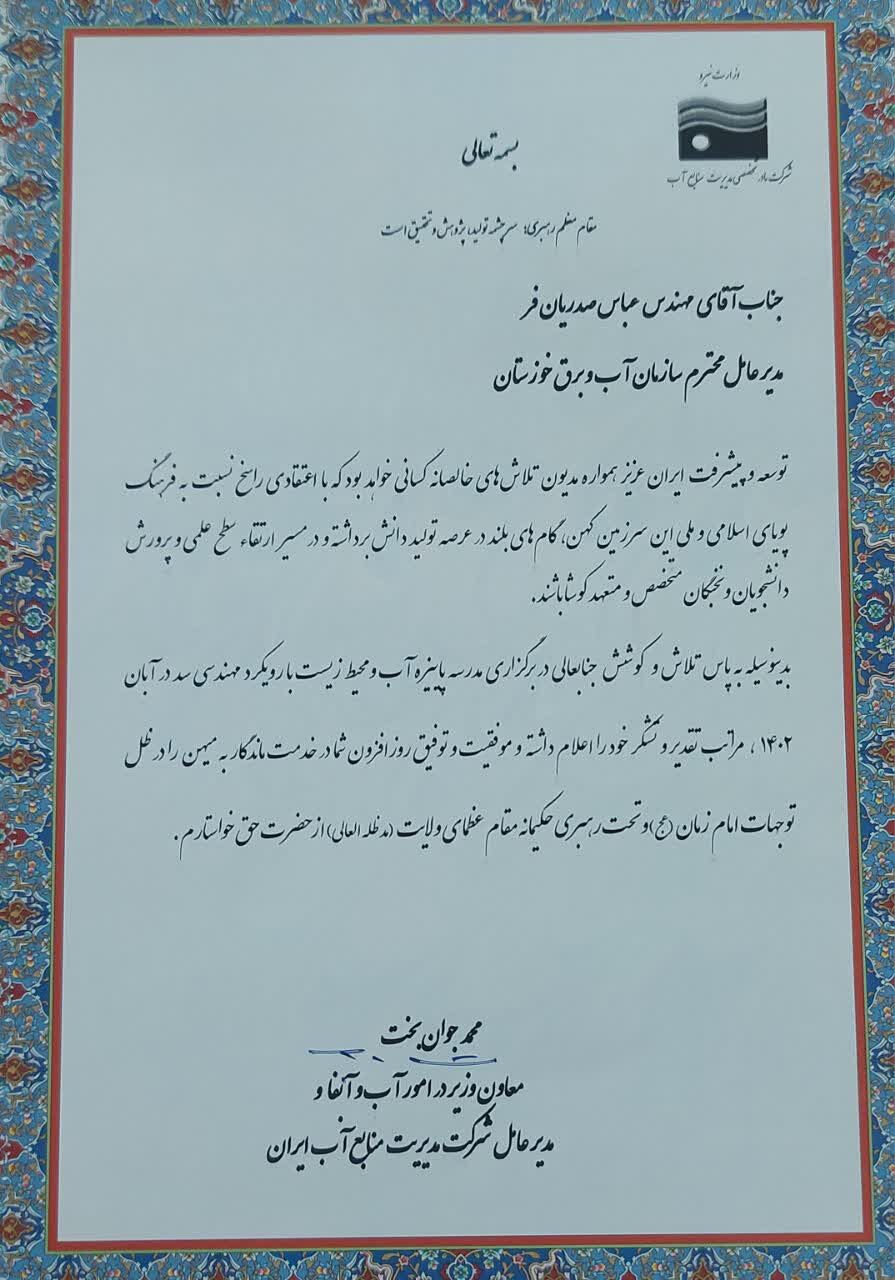 وزارت نیرو
شرکت مادر تخصصی مدیریت منابع آب
بسمه تعالی
مقام معظم رهبری: سرچشمه تولید، پژوهش و تحقیق است
جناب آقای مهندس عباس صدریان فر
مدیر عامل محترم سازمان آب و برق خوزستان
توسعه و پیشرفت ایران عزیز همواره مدیون تلاش های خالصانه کسانی خواهد بود که با اعتقادی راسخ نسبت به فرهنگ
پویای اسلامی و ملی این سرزمین کهن، گام های بلند در عرصه تولید دانش برداشته و در مسیر ارتقاء سطح علمی و پرورش
دانشجویان و نخبگان متخصص و متعهد کوشا باشند.
بدینوسیله به پاس تلاش و کوشش جنابعالی در برگزاری مدرسه پاییزه آب و محیط زیست با رویکرد مهندسی سد در آبان
۱۴۰۲، مراتب تقدیر و تشکر خود را اعلام داشته و موفقیت و توفیق روز افزون شما در خدمت ماندگار به میهن را در ظل
توجهات امام زمان (عج) و تحت رهبری حکیمانه مقام عظمای ولایت (مدظله العالی) از حضرت حق خواستارم.
محمد جوان بخت
معاون وزیر در امور آب و آبفا و
مدیر عامل شرکت مدیریت منابع آب ایران